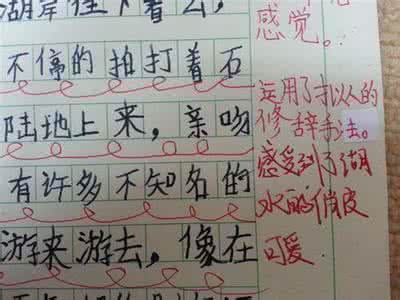 湖岸往下看去，
不停的拍打着石
陆地上来，亲吻
有许多不知名的
游来游去，像在
感觉。
运用了拟人的
修辞手法。
感受到了湖
水的俏皮
可爱.